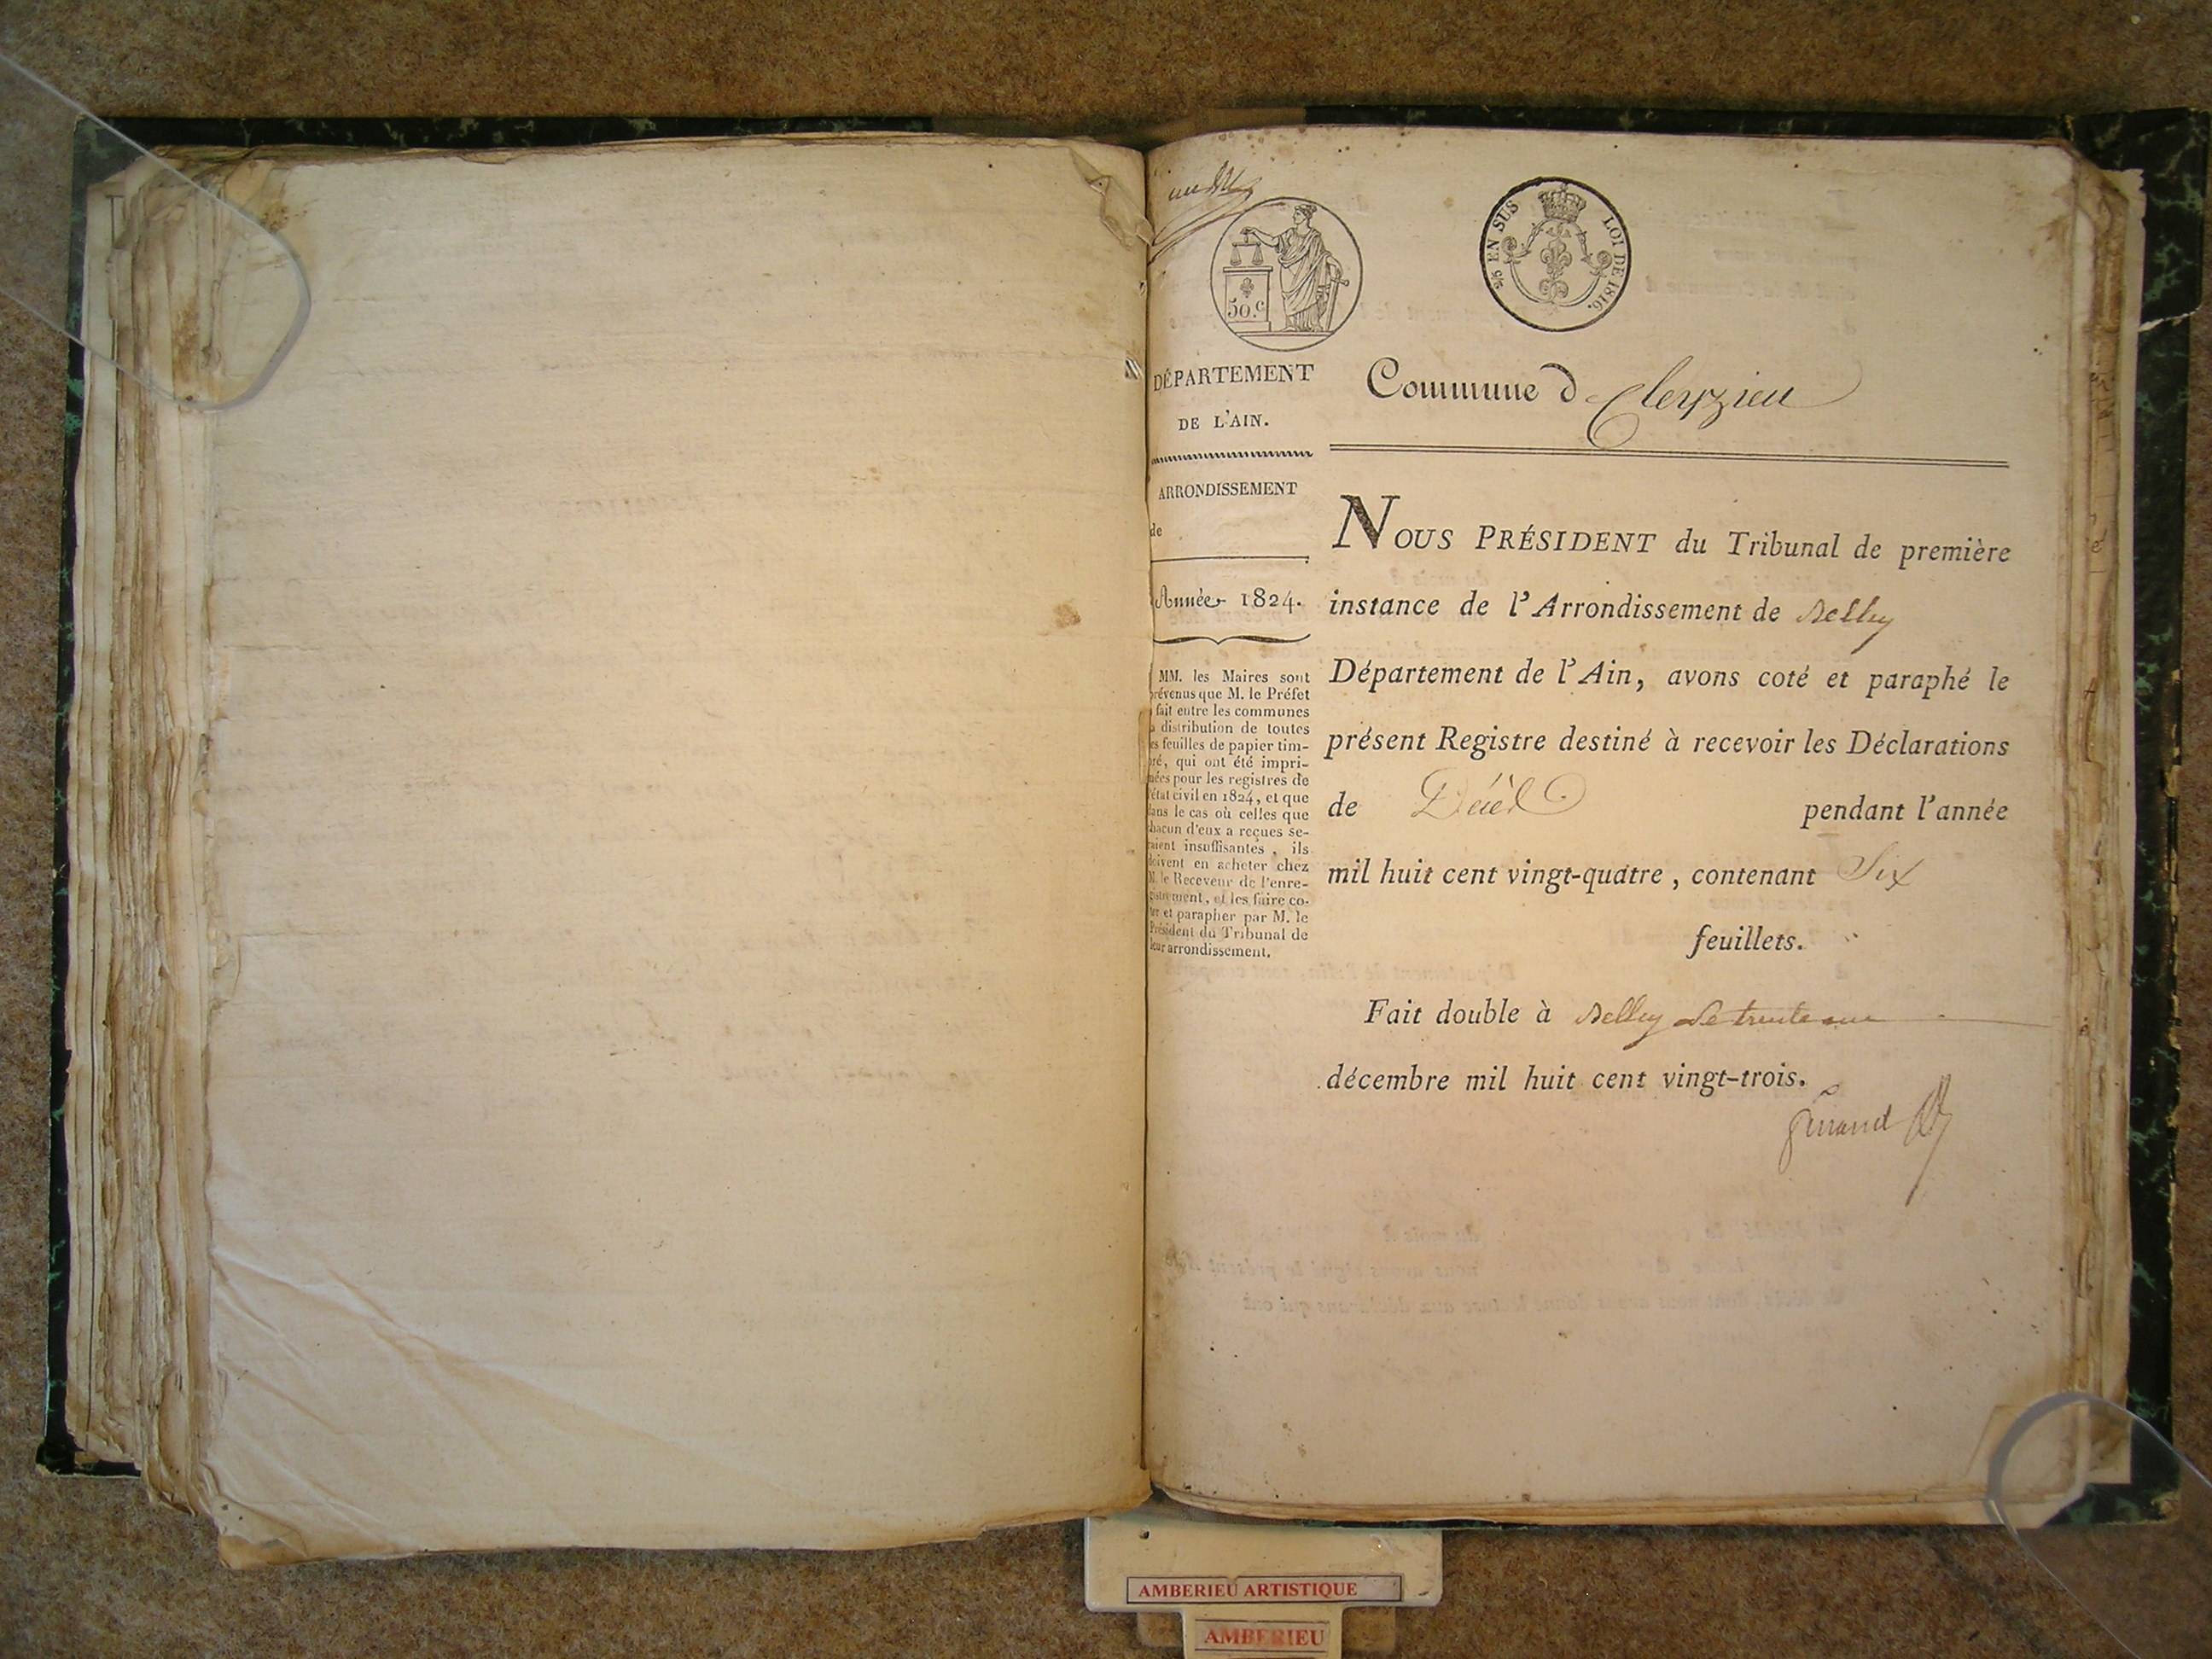 50.c
2/5 EN SUS LOI DE 1816.
DÉPARTEMENT
DE L'AIN.
ARRONDISSEMENT
de
Année 1824.
MM. les Maires sont
prévenus que M. le Préfet
fait entre les communes
a distribution de toutes
es feuilles de papier tim-
bré, qui ont été impri-
mées pour les registres de
l'état civil en 1824, et que
dans le cas où celles que
chacun d'eux a reçues se-
raient insuffisantes, ils
doivent en acheter chez
M. le Receveur de l'enre-
gistrement, et les faire co-
ter et parapher par M. le
Président du Tribunal de
leur arrondissement.
Commune d Cleyzieu
NOUS PRÉSIDENT du Tribunal de première
instance de l'Arrondissement de Belley
Département de l'Ain, avons coté et paraphé le
présent Registre destiné à recevoir les Déclarations
de Décès pendant l'année
mil huit cent vingt-quatre, contenant Six
feuillets.
Fait double à Belley le trente un
décembre mil huit cent vingt-trois.
AMBERIEU ARTISTIQUE
AMBERIEU